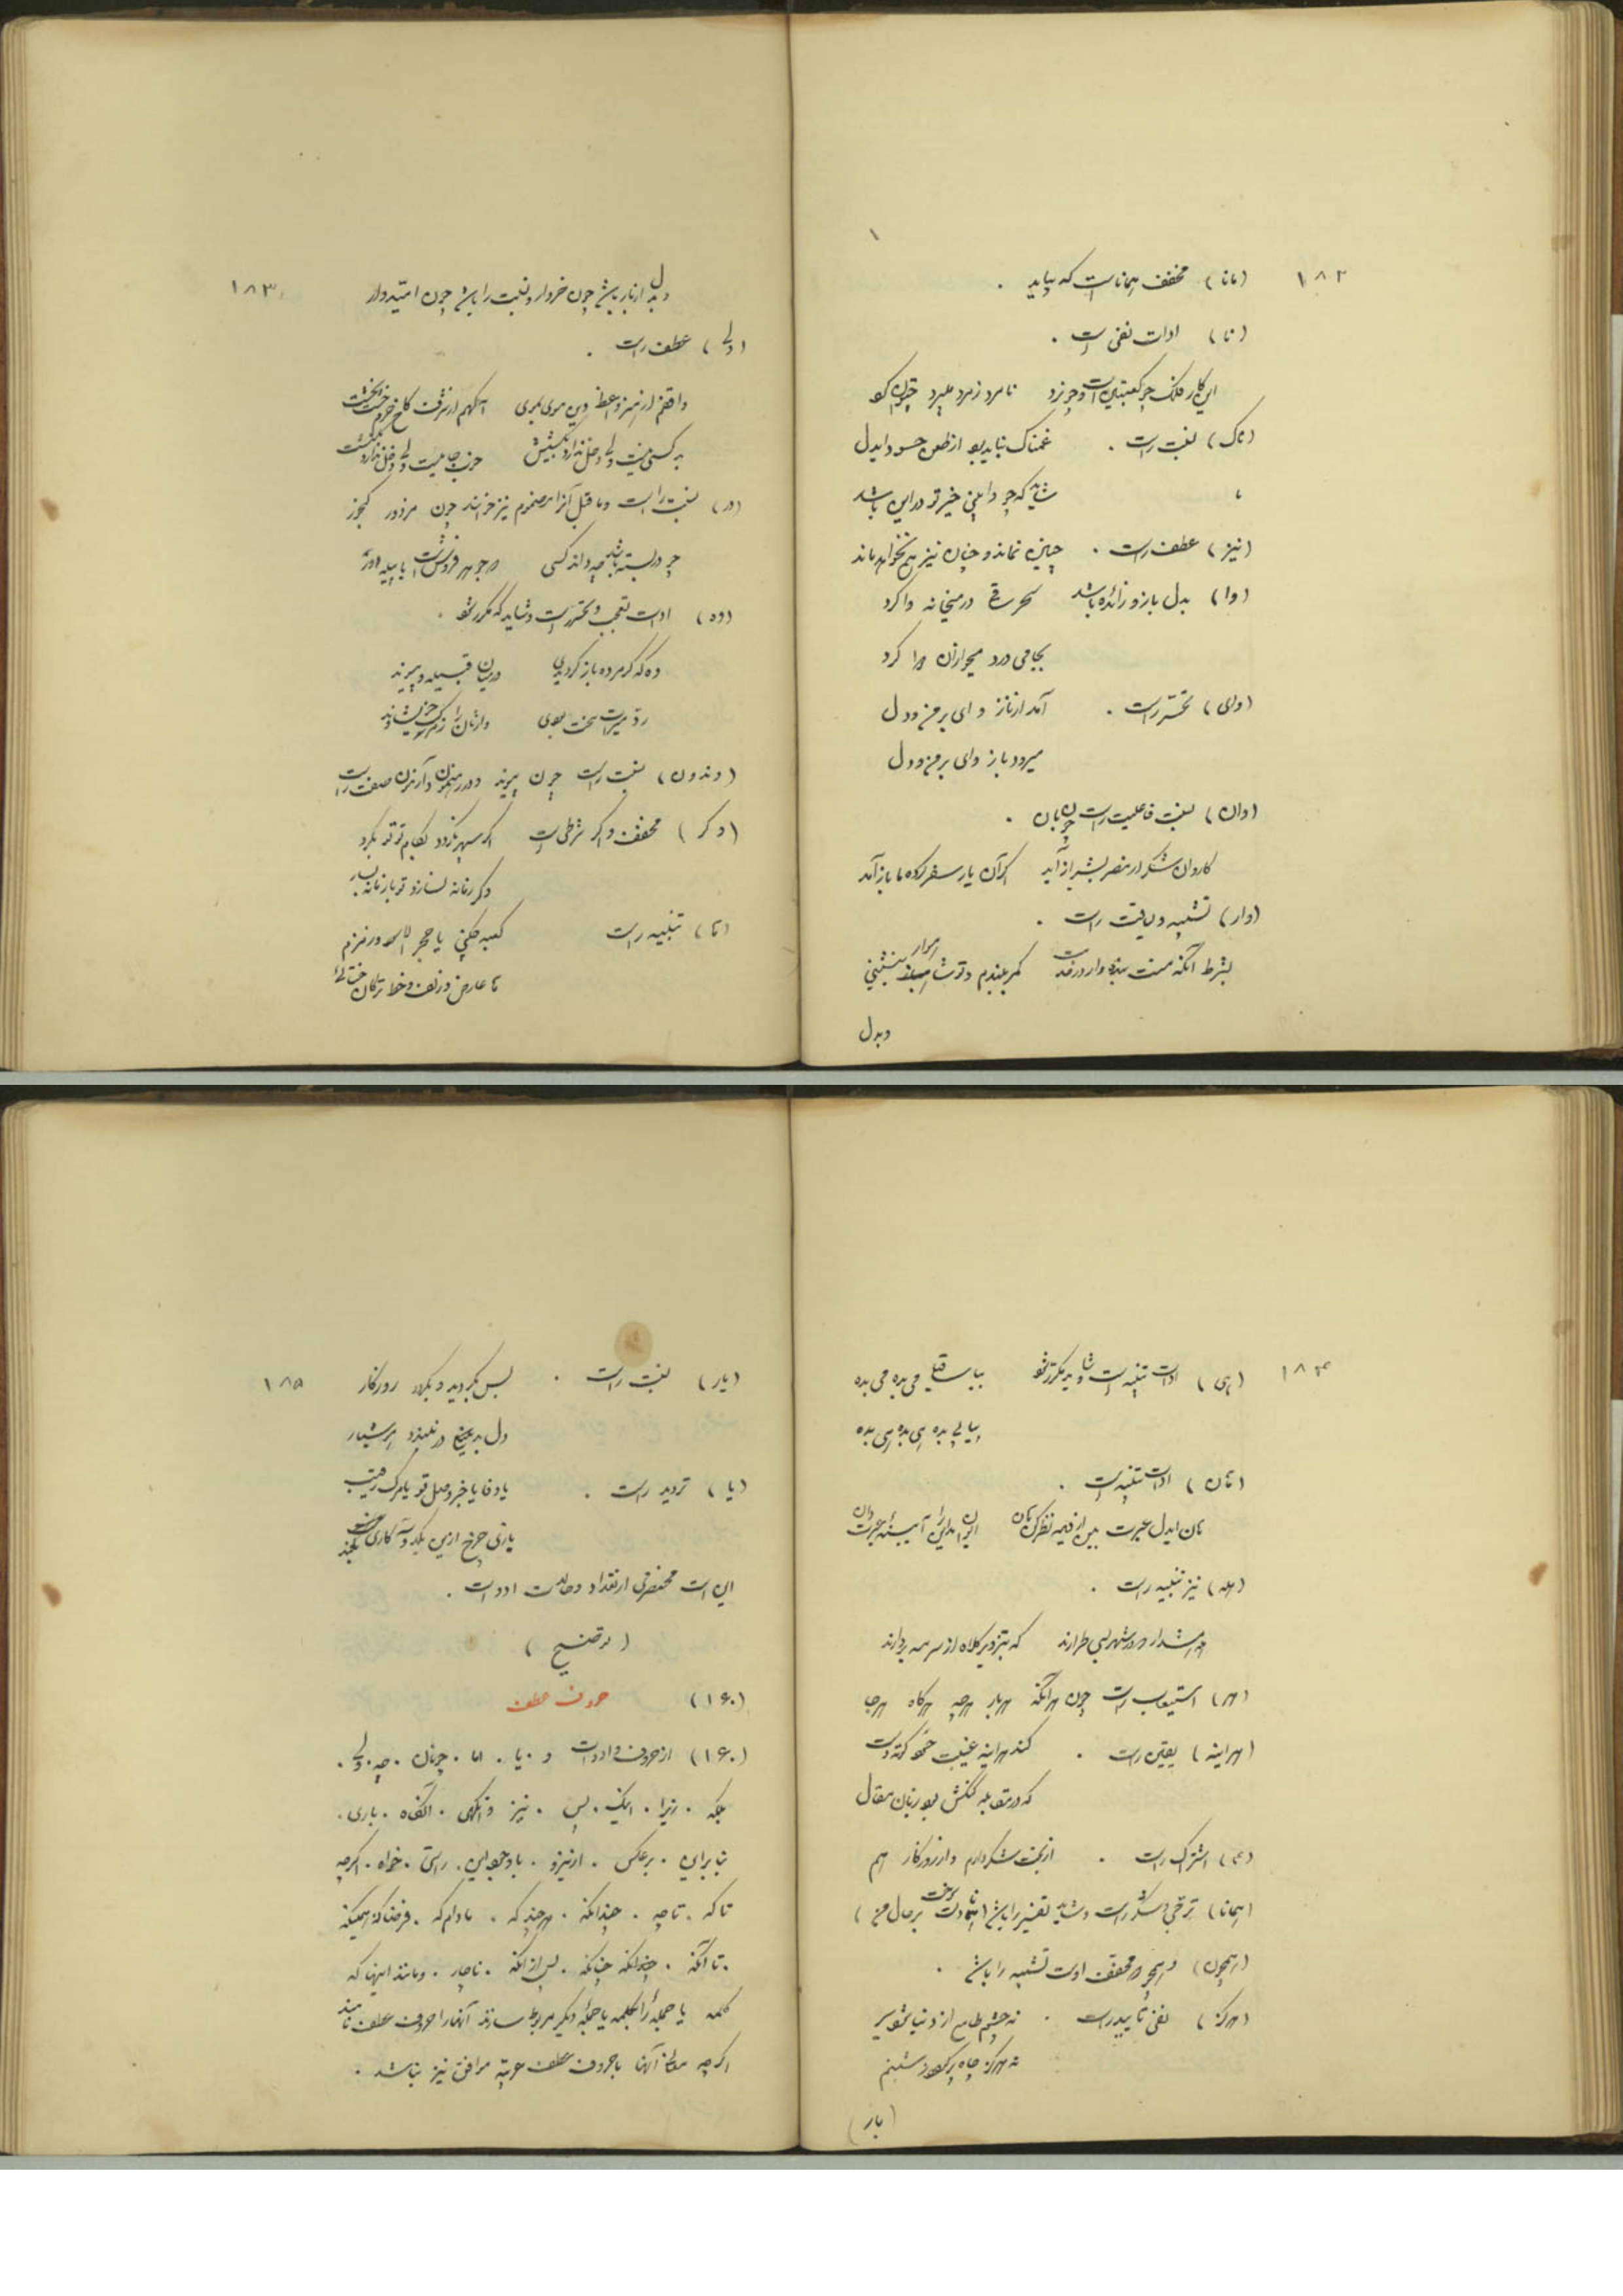 ۱۸۲
(مانا) مخفف همانا است که بیاید .
(نا) ادات نفی است .
این کار فلک چو کعبتین است و چو نرد نامرد ز مرد میبرد چتوان کرد
(ناک) نسبت راست . غمناک نباید بود از طعن حسود ایدل
شاید که چو وابینی خیر تو در این باشد
(نیز) عطف راست . چنین نماند و چنان نیز هم نخواهد ماند
(وا) بدل باز و زائده باشد سحر ساقی در میخانه وا کرد
بجامی درد میخواران دوا کرد
(وای) تحسّر راست . آمد از ناز وای بر من و دل
میرود باز وای بر من و دل
(وان) نسبت فاعلیت راست چون بان .
کاروان شکر از مصر بشیراز آید گر آن یار سفر کرده ما باز آمد
(وار) تشبیه و لیاقت راست .
بشرط آنکه منت بنده وار در خدمت کمر ببندم و تو شاهوار بنشینی
وبدل
۱۸۳
وبدل از بار باشد چون خروار و نسبت را باشد چون امیدوار
(ولی) عطف راست .
به کسی نیست ولی دخل ندارد
(ور) نسبت راست و ما قبل آنرا مضموم نیز خوانند چون مزدور گنجور
چو در بسته باشد چه داند کسی که جوهر فروش است یا پیله ور
(وه) ادات تعجب و تحسّر است و شاید که مکرر شود .
وه که گر مرده باز گردیدی در میان قبیله و پیوند
رد میراث سخت بودی وارثان را ز مرگ خویشاوند
(وند ون) نسبت راست چون پیوند
(وگر) مخفف و اگر شرطی است اگر سپهر نگردد بکام تو تو بگرد
وگر زمانه نسازد تو با زمانه بساز
(تا) تنبیه راست کعبه چکنی با حجر الاسود و زمزم
تا عارض و زلف و خط ترکان ختائی
۱۸۴
(هی) ادات تنبیه است شاید مکرر شود بیا ساقی می بده می بده
پیاپی بده هی بده هی بده
(هان) ادات تنبیه است .
هان ایدل عبرت بین از دیده نظر کن هان ایوان مدائن را آیینه عبرت دان
(هله) نیز تنبیه راست .
هله هشدار که در شهر دو سه طرارند که بتزویر کلاه از سر مه بردارند
(هر) استیعاب راست چون هر آنکه هر بار هر چه هر گاه هر جا
(هر اینه) یقین راست . کند هر اینه غیبت حسود کوته دست
که در مقابله گنگش بود زبان مقال
(هم) اشتراک راست . از بخت شکر دارم و از روزگار هم
(همانا) ترجّی و شک راست و شاید تفسیر را باشد (همانا دلت سوخت بر حال من)
(همچون) و همچو مخفف ادات تشبیه را باشد .
(هرگز) نفی تأبید راست . نه چشم طامع از دنیا شود سیر
نه هرگز چاه پر گردد ز شبنم
(یار)
۱۸۵
(یار) نسبت راست . بس بگردید و بگردد روزگار
دل بدنیا در نبندد هوشیار
(یا) تردید راست . یا وفا یا خبر وصل تو یا مرگ رقیب
بازی چرخ ازین یک دو سه کاری بکند
این است مختصری از تعداد و حالات ادوات .
(توضیح)
(۱۶۰) حروف عطف
(۱۶۰) از حروف و ادوات و . یا . اما . چونان . چه . ولی .
بلکه . زیرا . اینک . پس . نیز . وانگهی . آنگاه . باری .
بنا براین . بر عکس . از نیرو . با وجود این . راستی . خواه . اگرچه
تا که . تا چه . چندانکه . هر چند که . مادام که . فرضا که . همینکه
. تا آنکه . چندانکه چنانکه . پس از آنکه . ناچار . و مانند اینها که
کلمه یا جمله را بکلمه یا جمله دیگر مربوط سازند آنها را حروف عطف نامند
اگرچه معانی آنها با حروف عطف عربیه موافق نیز نباشد .